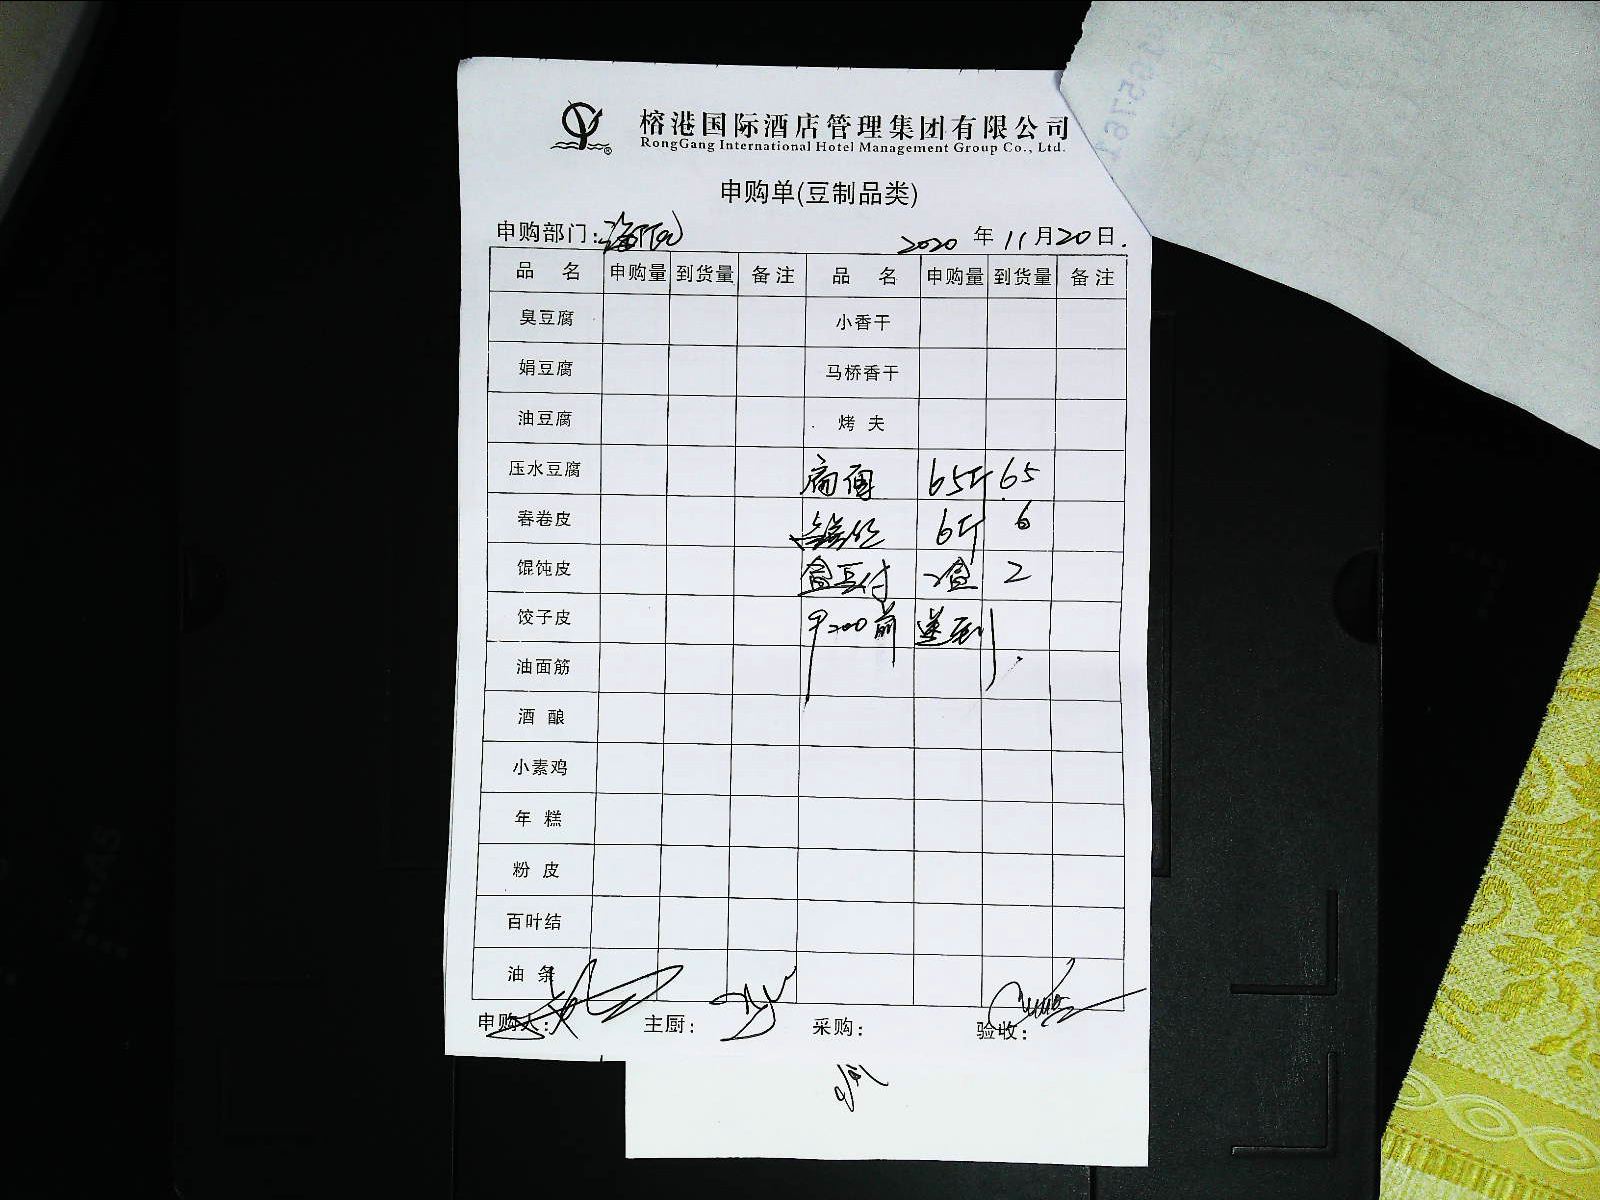 榕港国际酒店管理集团有限公司
RongGang International Hotel Management Group Co., Ltd.
申购单(豆制品类)
申购部门: 2020 年 11 月 20 日.
品 名 申购量 到货量 备注 品 名 申购量 到货量 备注
臭豆腐 小香干
娟豆腐 马桥香干
油豆腐 烤 夫
压水豆腐 65斤 65
春卷皮 6斤 6
馄饨皮 盒豆付 2盒 2
饺子皮 早200前 送到
油面筋
酒 酿
小素鸡
年 糕
粉 皮
百叶结
油 条
申购人: 主厨: 采购: 验收: